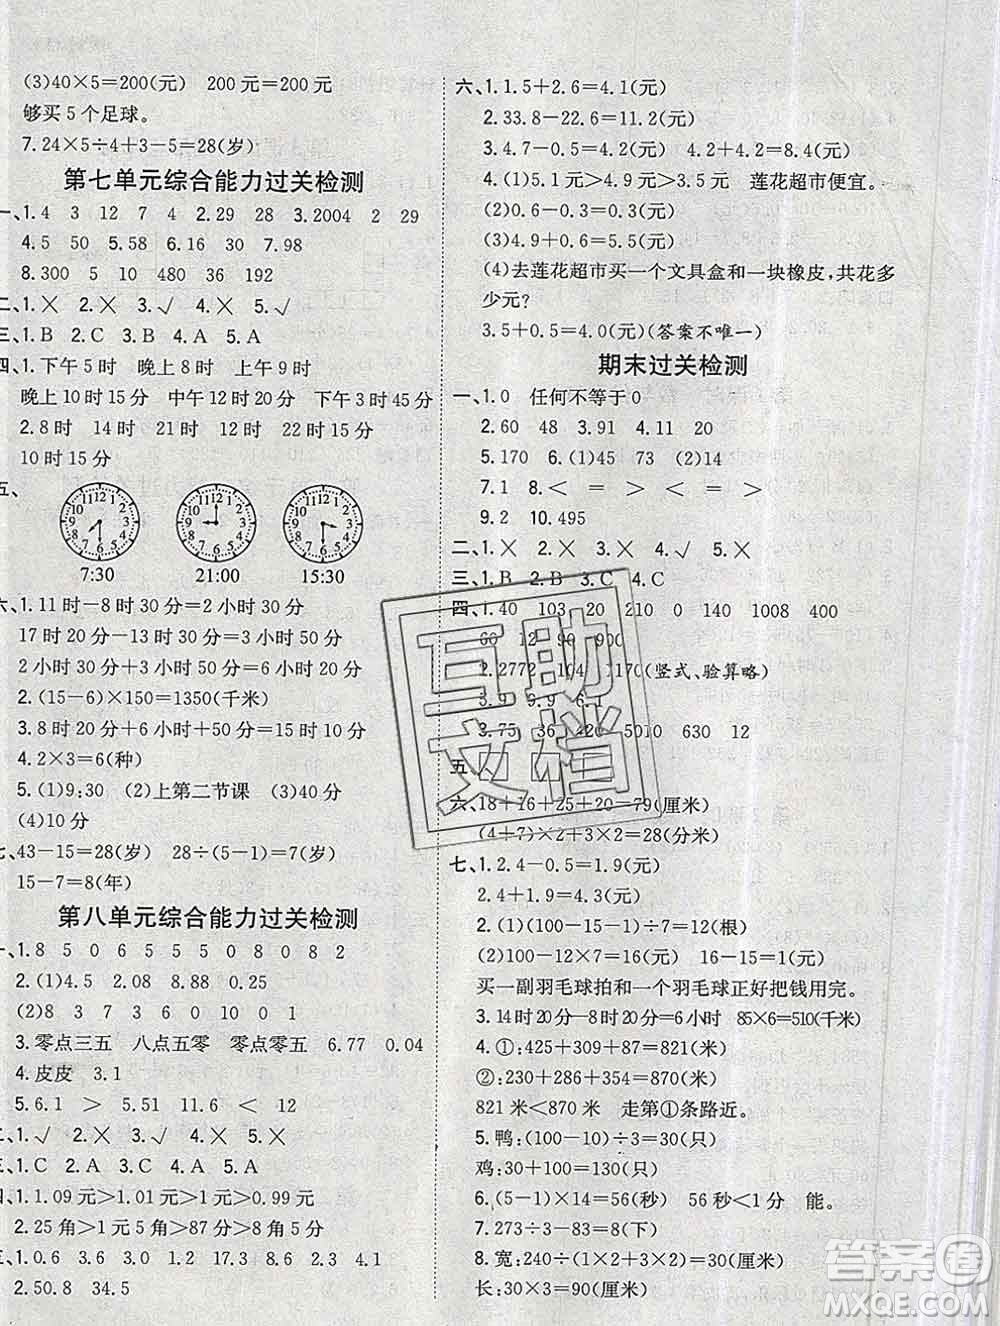 (3)40×5=200(元) 200元=200元
够买5个足球。
7.24×5÷4+3-5=28(岁)
第七单元综合能力过关检测
一、1.4 3 12 7 4 2.29 28 3.2004 2 29
4.5 50 5.58 6.16 30 7.98
8.300 5 10 480 36 192
二、1.× 2.× 3.√ 4.× 5.√
三、1.B 2.C 3.B 4.A 5.A
四、1.下午5时 晚上8时 上午9时
晚上10时15分 中午12时20分 下午3时45分
2.8时 14时 19时 21时30分
10时15分
五、
7:30 21:00 15:30
六、1.11时-8时30分=2小时30分
17时20分-14时50分=2小时30分
2小时30分=2小时30分
2.(15-6)×150=1350(千米)
3.8时20分+2小时15分=10时35分
4.2×3=6(种)
5.(1)9:30 (2)上第二节课 (3)40分
(4)10分
七、43-15=28(岁) 28÷(5-1)=7(岁)
15-7=8(年)
第八单元综合能力过关检测
一、1.8 5 0 6 5 5 0 8 0 8 2
2.(1)4.15 2.08 8.88 9.22
(2)8 3 7 3 6 0 10 0 1
3.零点三五 八点五零 零点零五 6.77 0.04
4.皮皮 3.1
5.6.1 > 5.51 11.6 < 12
二、1.√ 2.× 3.√ 4.× 5.×
三、1.C 2.A 3.C 4.A 5.A
四、1.1.10元>1.01元>1元>0.99元
2.25角>1元5角>87分>8角5分
三、1.0.6 3.6 3.0 1.2 17.3 8.6 3.4
2.50.8 34.5
六、1.1.5+2.6=4.1(元)
2.33.8-22.6=11.2(元)
3.4.7-0.5=4.2(元) 4.2+4.2=8.4(元)
4.(1)5.1元>4.9元>3.5元 莲花超市便宜。
(2)0.6-0.3=0.3(元)
(3)4.9-0.4=4.5(元)
(4)去莲花超市买一个文具盒和一块橡皮,共花多
少元?
3.5+0.5=4.0(元)(答案不唯一)
期末过关检测
一、1.0 任何不等于0
2.60 48 3.91 4.11 20
5.170 6.(1)45 73 (2)14
7.1 8.< = < = > >
9.2 10.495
二、1.× 2.× 3.× 4.√ 5.×
三、1.B 2.B 3.C 4.C
四、1.40 103 20 210 0 140 1008 400
60 12 90 900
2.2772 104 1170(竖式、验算略)
3.9 9.9 6.1
3.75 36 420 5010 630 12
五、
六、18+16+25+20=79(厘米)
(4+7)×2+3×2=28(分米)
七、1.2.4-0.5=1.9(元)
2.4+1.9=4.3(元)
2.(1)(100-15)÷7=12(根)
(2)100-12×7=16(元) 16-15=1(元)
买一副羽毛球拍和一个羽毛球正好把钱用完。
3.14时20分-8时20分=6小时 85×6=510(千米)
4.①:425+309+87=821(米)
②:230+286+354=870(米)
821米<870米 走第①条路近。
5.鸭:(100-10)÷3=30(只)
鸡:30+100=130(只)
6.(5-1)×14=56(秒) 56秒<1分 能。
7.273÷3-83=8(下)
8.宽:240÷(1×2+3×2)=30(厘米)
长:30×3=90(厘米)
互助
文档
答案圈
MXQE.COM